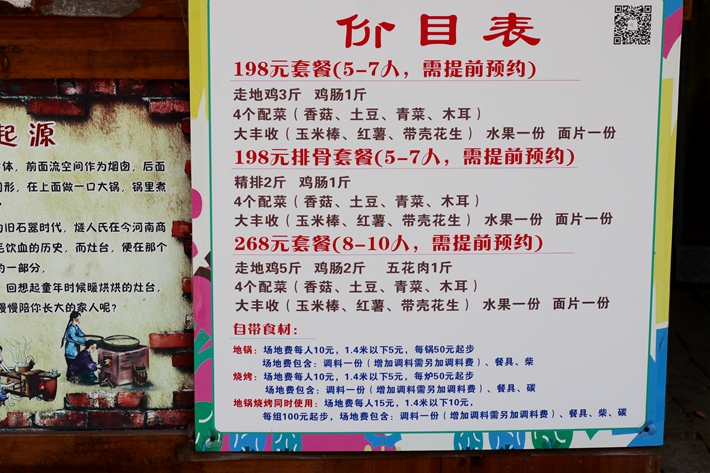 价目表
198元套餐(5-7人，需提前预约)
走地鸡3斤 鸡肠1斤
4个配菜（香菇、土豆、青菜、木耳）
大丰收（玉米棒、红薯、带壳花生） 水果一份 面片一份
198元排骨套餐(5-7人，需提前预约)
精排2斤 鸡肠1斤
4个配菜（香菇、土豆、青菜、木耳）
大丰收（玉米棒、红薯、带壳花生） 水果一份 面片一份
268元套餐(8-10人，需提前预约)
走地鸡5斤 鸡肠2斤 五花肉1斤
4个配菜（香菇、土豆、青菜、木耳）
大丰收（玉米棒、红薯、带壳花生） 水果一份 面片一份
自带食材：
地锅：场地费每人10元，1.4米以下5元，每锅50元起步
场地费包含：调料一份（增加调料需另加调料费）、餐具、柴
烧烤：场地费每人10元，1.4米以下5元，每炉50元起步
场地费包含：调料一份（增加调料需另加调料费）、餐具、碳
地锅烧烤同时使用：场地费每人15元，1.4米以下10元，
每组100元起步，场地费包含：调料一份（增加调料需另加调料费）、餐具、柴、碳
起源
体，前面流空间作为烟囱，后面
形，在上面做一口大锅，锅里煮
旧石器时代，燧人氏在今河南商
毛饮血的历史，而灶台，便在那个
的一部分，
回想起童年时候暖烘烘的灶台，
慢慢陪你长大的家人呢？